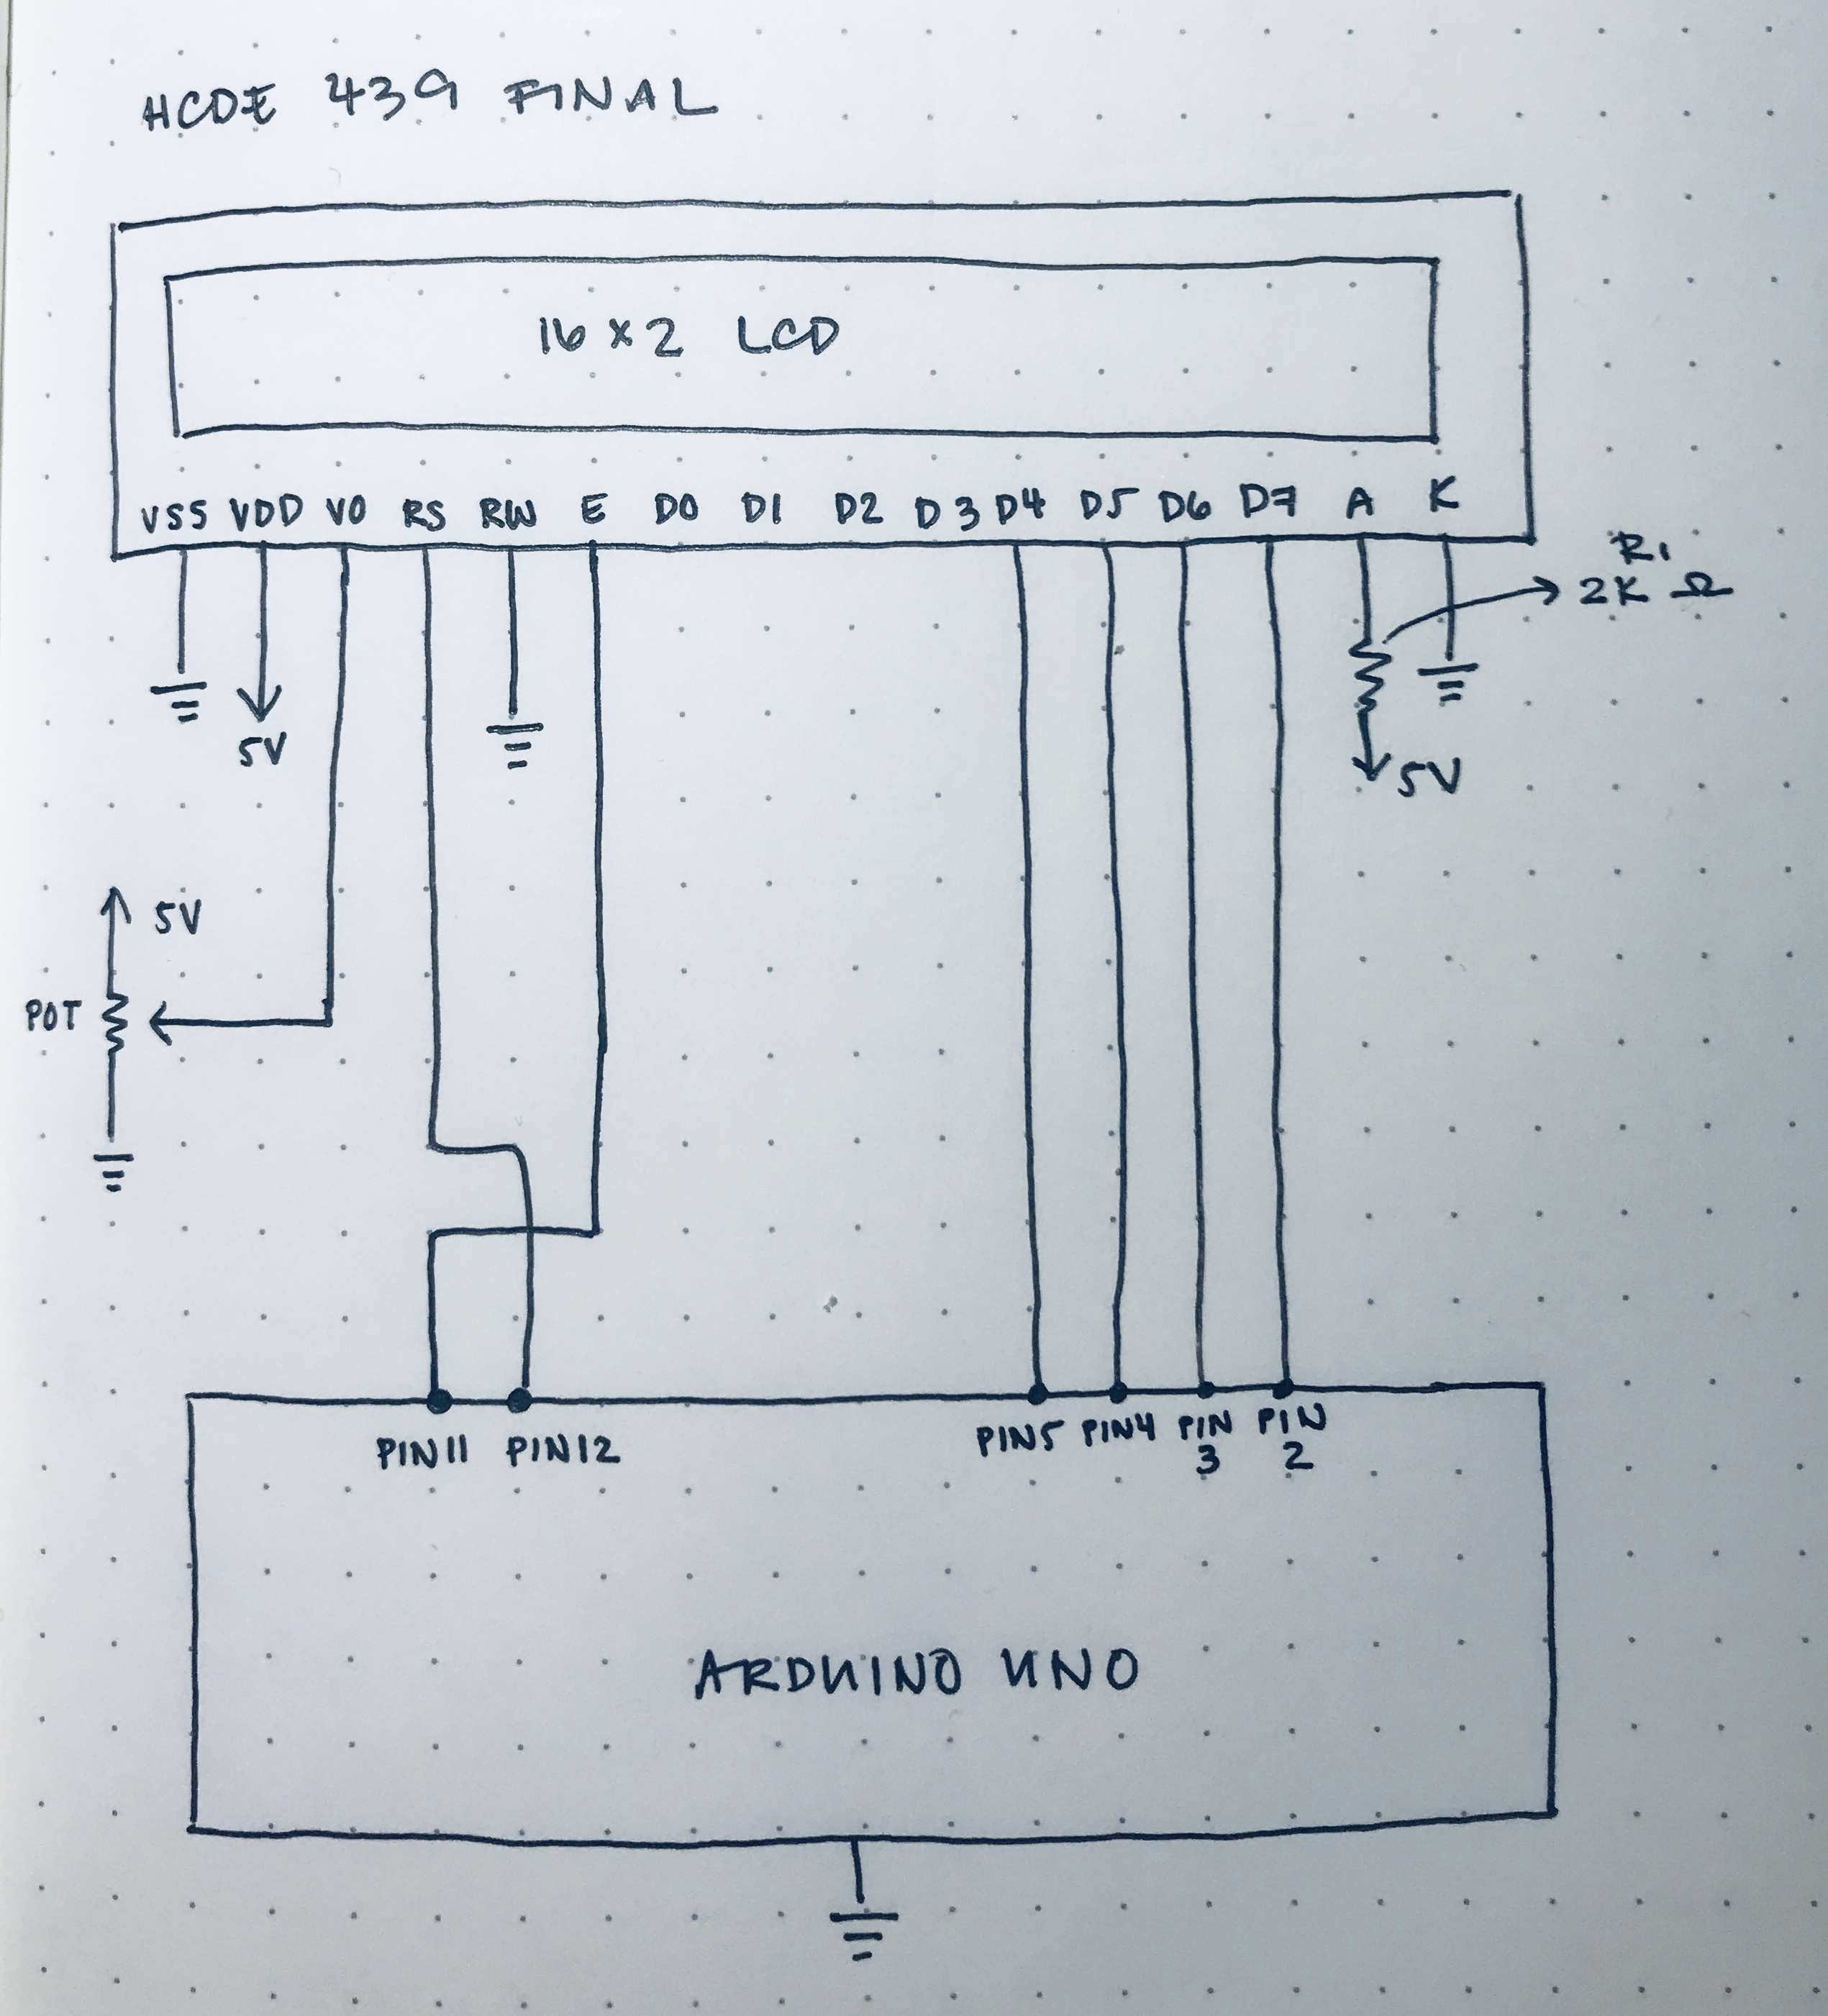 HCDE 439 FINAL
16 x 2 LCD
VSS VDD VO RS RW E D0 D1 D2 D3 D4 D5 D6 D7 A K
R1
2K Ω
5V
5V
5V
POT
PIN11 PIN12 PIN5 PIN4 PIN 3 PIN 2
ARDUINO UNO